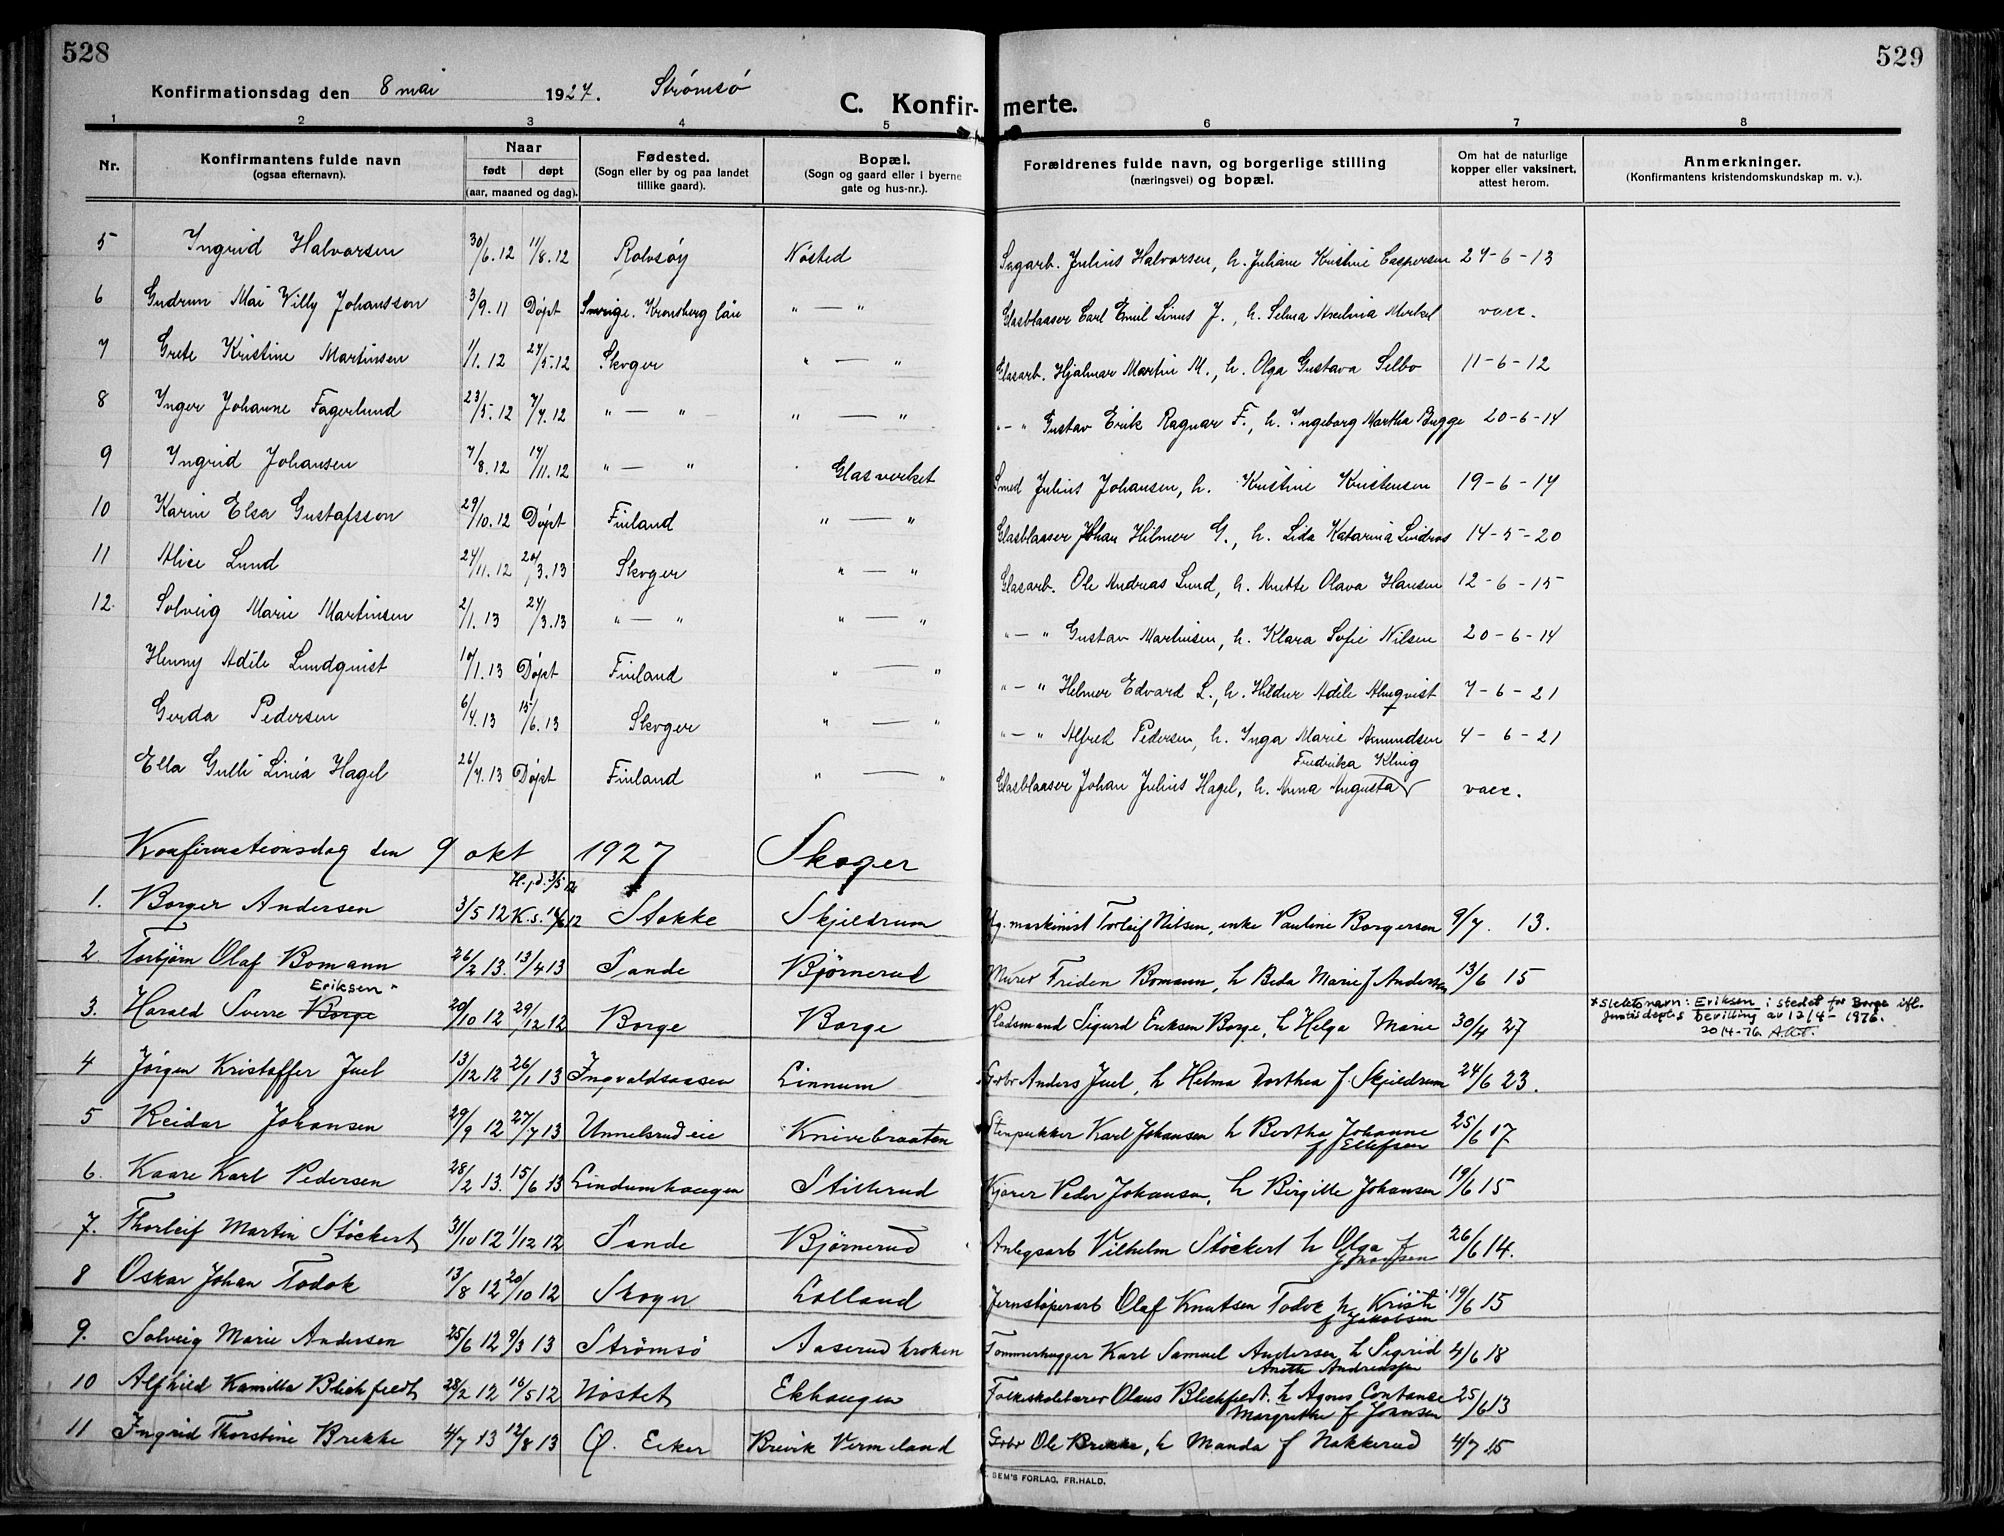 528
529
Konfirmationsdag den 8 mai 1927. Strømsø
C. Konfir- merte.
1 2 3 4 5 6 7 8
Nr. Konfirmantens fulde navn (ogsaa efternavn). Naar født døpt (aar, maaned og dag). Fødested. (Sogn eller by og paa landet tillike gaard). Bopæl. (Sogn og gaard eller i byerne gate og hus-nr.). Forældrenes fulde navn, og borgerlige stilling (næringsvei) og bopæl. Om hat de naturlige kopper eller vaksinert, attest herom. Anmerkninger. (Konfirmantens kristendomskundskap m. v.).
5 Ingrid Halvorsen 30/6.12 11/8.12 Rolvsøy Nøsted Sagarb. Julius Halvorsen, h. Juliane Kristine Caspersen 24-6-13
6 Gudrun Mai Willy Johansson 3/9.11 Døpt Sverige. Kronoberg län " — " Glasblaaser Carl Emil Linus J., h. Selma Axelina Merkel vacc.
7 Grete Kristine Martinsen 1/1.12 27/5.12 Skoger " — " Glasarb. Hjalmar Martin M., h. Olga Gustava Selbo 11-6-12
8 Inger Johanne Fagerlund 23/5.12 7/7.12 " — " " — " " — " Gustav Erik Ragnar F., h. Ingeborg Martha Bugge 20-6-14
9 Ingrid Johansen 7/8.12 17/11.12 " — " Glasverket Smed Julius Johansen, h. Kristine Kristensen 19-6-14
10 Karin Elsa Gustafsson 29/10.12 Døpt Finland " — " Glasblaaser Johan Hilmer G., h. Lida Katarina Lindros 14-5-20
11 Alice Lund 24/11.12 20/3.13 Skoger " — " Glasarb. Ole Andreas Lund, h. Anette Olava Hansen 12-6-15
12. Solveig Marie Martinsen 2/1.13 24/3.13 " — " " — " " — " Gustav Martinsen, h. Klara Sofie Nilsen 20-6-14
Henny Adéle Lundqvist 10/1.13 Døpt Finland " — " " — " Helmer Edvard L., h. Hildur Adéle Almqvist 7-6-21
Gerda Pedersen 6/4.13 15/6.13 Skoger " — " " — " Alfred Pedersen, h. Inga Marie Amundsen 4-6-21
Ella Gulli Linéa Hagel 26/4.13 Døpt Finland " — " Glasblaaser Johan Julius Hagel, h. Anna Augusta Fredrika Kling vacc.
Konfirmationsdag den 9 okt 1927 Skoger
1. Borger Andersen 3/5 12 H.d. 3/5 12 K.s. 16/6 12 Stokke Skjeldrum maskinist Torleif Nilsen, enke Pauline Borgersen 9/7. 13.
2. Torbjørn Olaf Bomann 26/2 13. 13/4 13 Sande Bjørnerud Murer Friden Bomann, h Beda Marie f Andersen 13/6 15
3. Harald Sverre Borge Eriksen 20/10 12 29/12 12 Borge Borge Pladsmand Sigurd Eriksen Borge, h Helga Marie 30/4 27 *Slektsnavn: Eriksen i stedet for Borge ifl. Justisdepts bevilling av 12/4-1976. 20/4-76.
4 Jørgen Kristoffer Juel 13/12 12 26/1 13 Ingvaldsaasen Linnum Gbr Anders Juel, h Helma Dorthea f. Skjeldrum 24/6 23.
5 Reidar Johansen 29/9 12 27/7 13 Unnelsrud eie Knivebraaten Stenpukker Karl Johansen h Bertha Johanne f Ellefsen 25/6 17
6. Kaare Karl Pedersen 28/2 13. 15/6 13 Lindumhaugen Stillerud Kjører Peder Johansen, h Birgitte Johansen 19/6 15
7. Thorleif Martin Stöckert 31/10 12 1/12 12 Sande Bjørnerud Anlegsarb Vilhelm Stöckert h Olga f 26/6 14.
8 Oskar Johan Todok 13/8 12 20/10 12 Skoger Lolland Jernstøperarb Olaf Knutsen h Kristi f Jakobsen 19/6 15
9. Solveig Marie Andersen 25/6 12 9/3 13 Strømsø Aaserudkroken Tømmerhugger Karl Samuel Andersen h Sigrid Anette Andreassen 4/6 18
10 Alfhild Kamilla Blichfeldt 28/2 12 16/5 12 Nøstet Ekhaugen Folkeskolelærer Olaus Blichfeldt. h Agnes Contanse Margrethe f Johnsen 25/6 13
11 Ingrid Thorstine Brekke 4/7 13 17/8 13 Ø. Eiker Brevik Vermeland Gbr Ole Brekke, h Manda f Nakkerud 4/7 15
SEM'S FORLAG, FR.HALD.